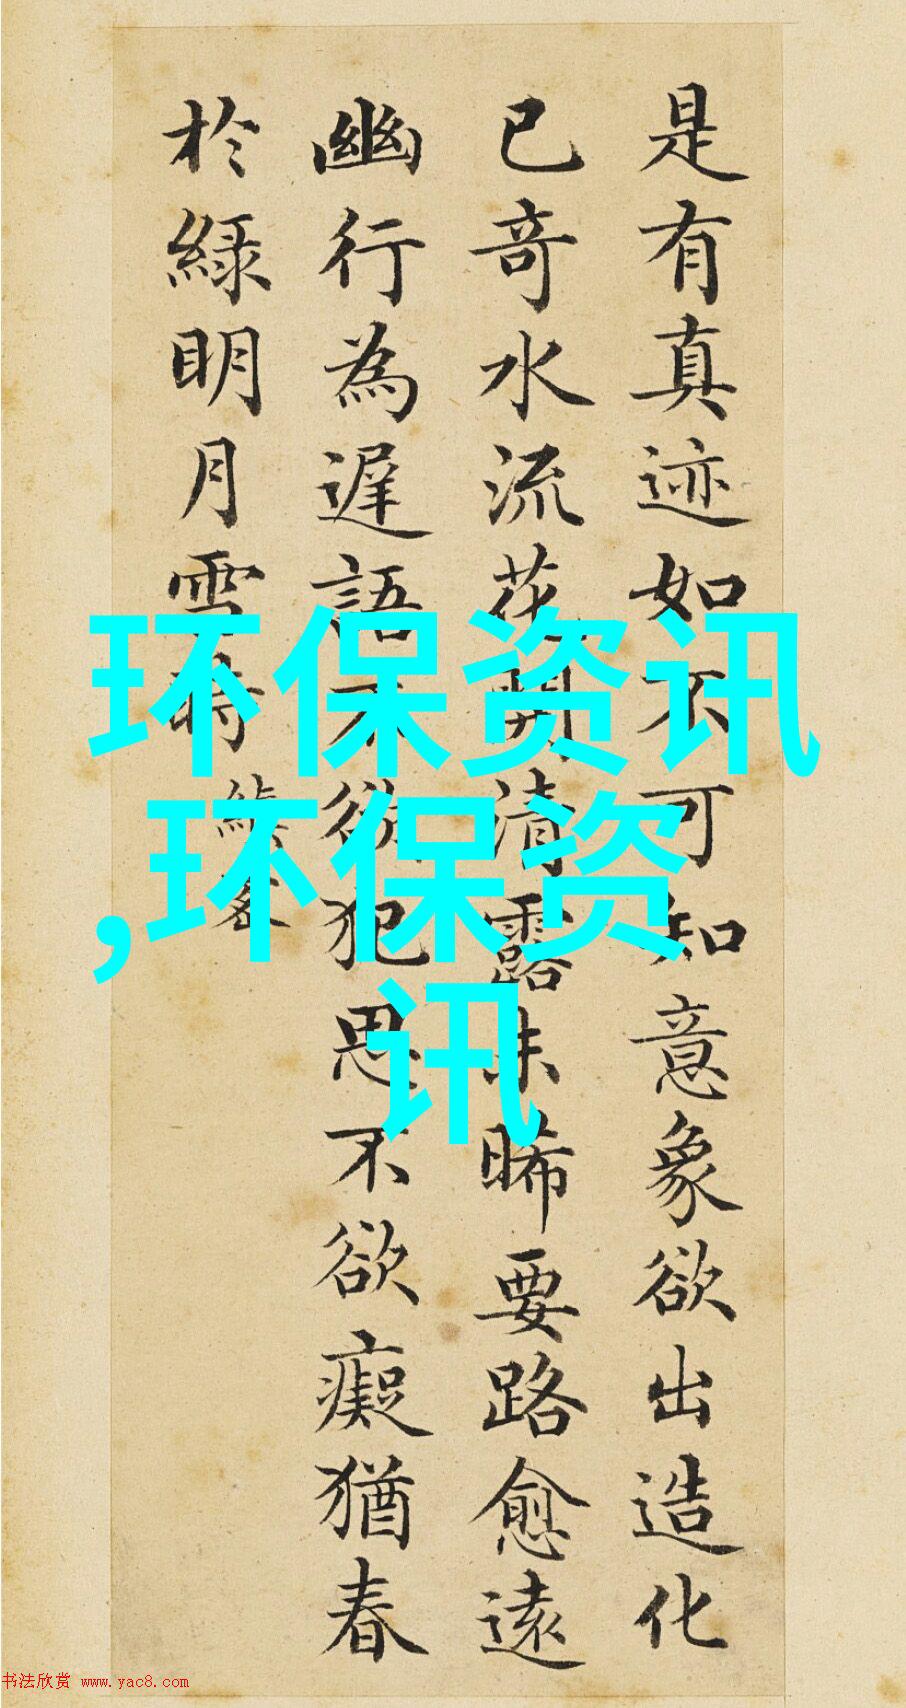 是有真迹如不可知意象欲出造化
已奇水流花開清露未晞要路愈遠
幽行為遲語不欲犯思不欲癡猶春
於綠明月雪時
环保资讯
,环保资
讯
书法欣赏 www.yac8.com